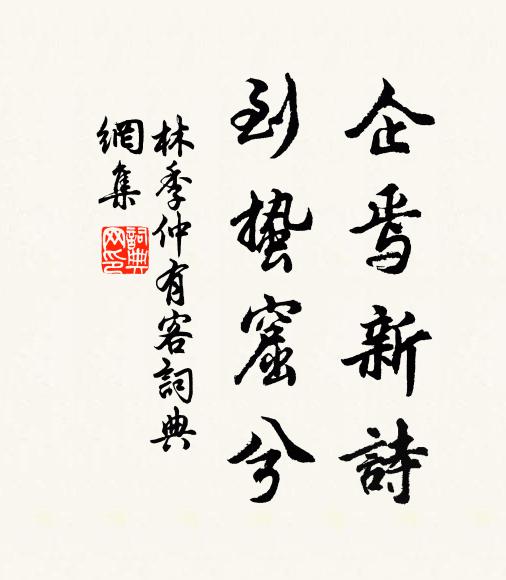 企焉新詩
到蟄窟兮
林季仲有客詞典
網集
詞典网印